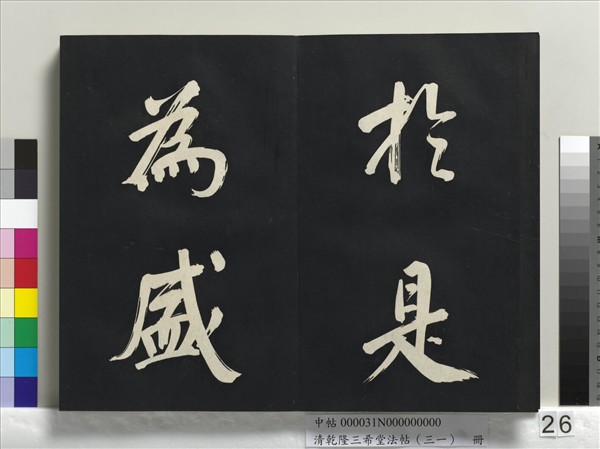 於是
為盛
中帖 000031N000000000
清乾隆三希堂法帖（三一） 冊
26